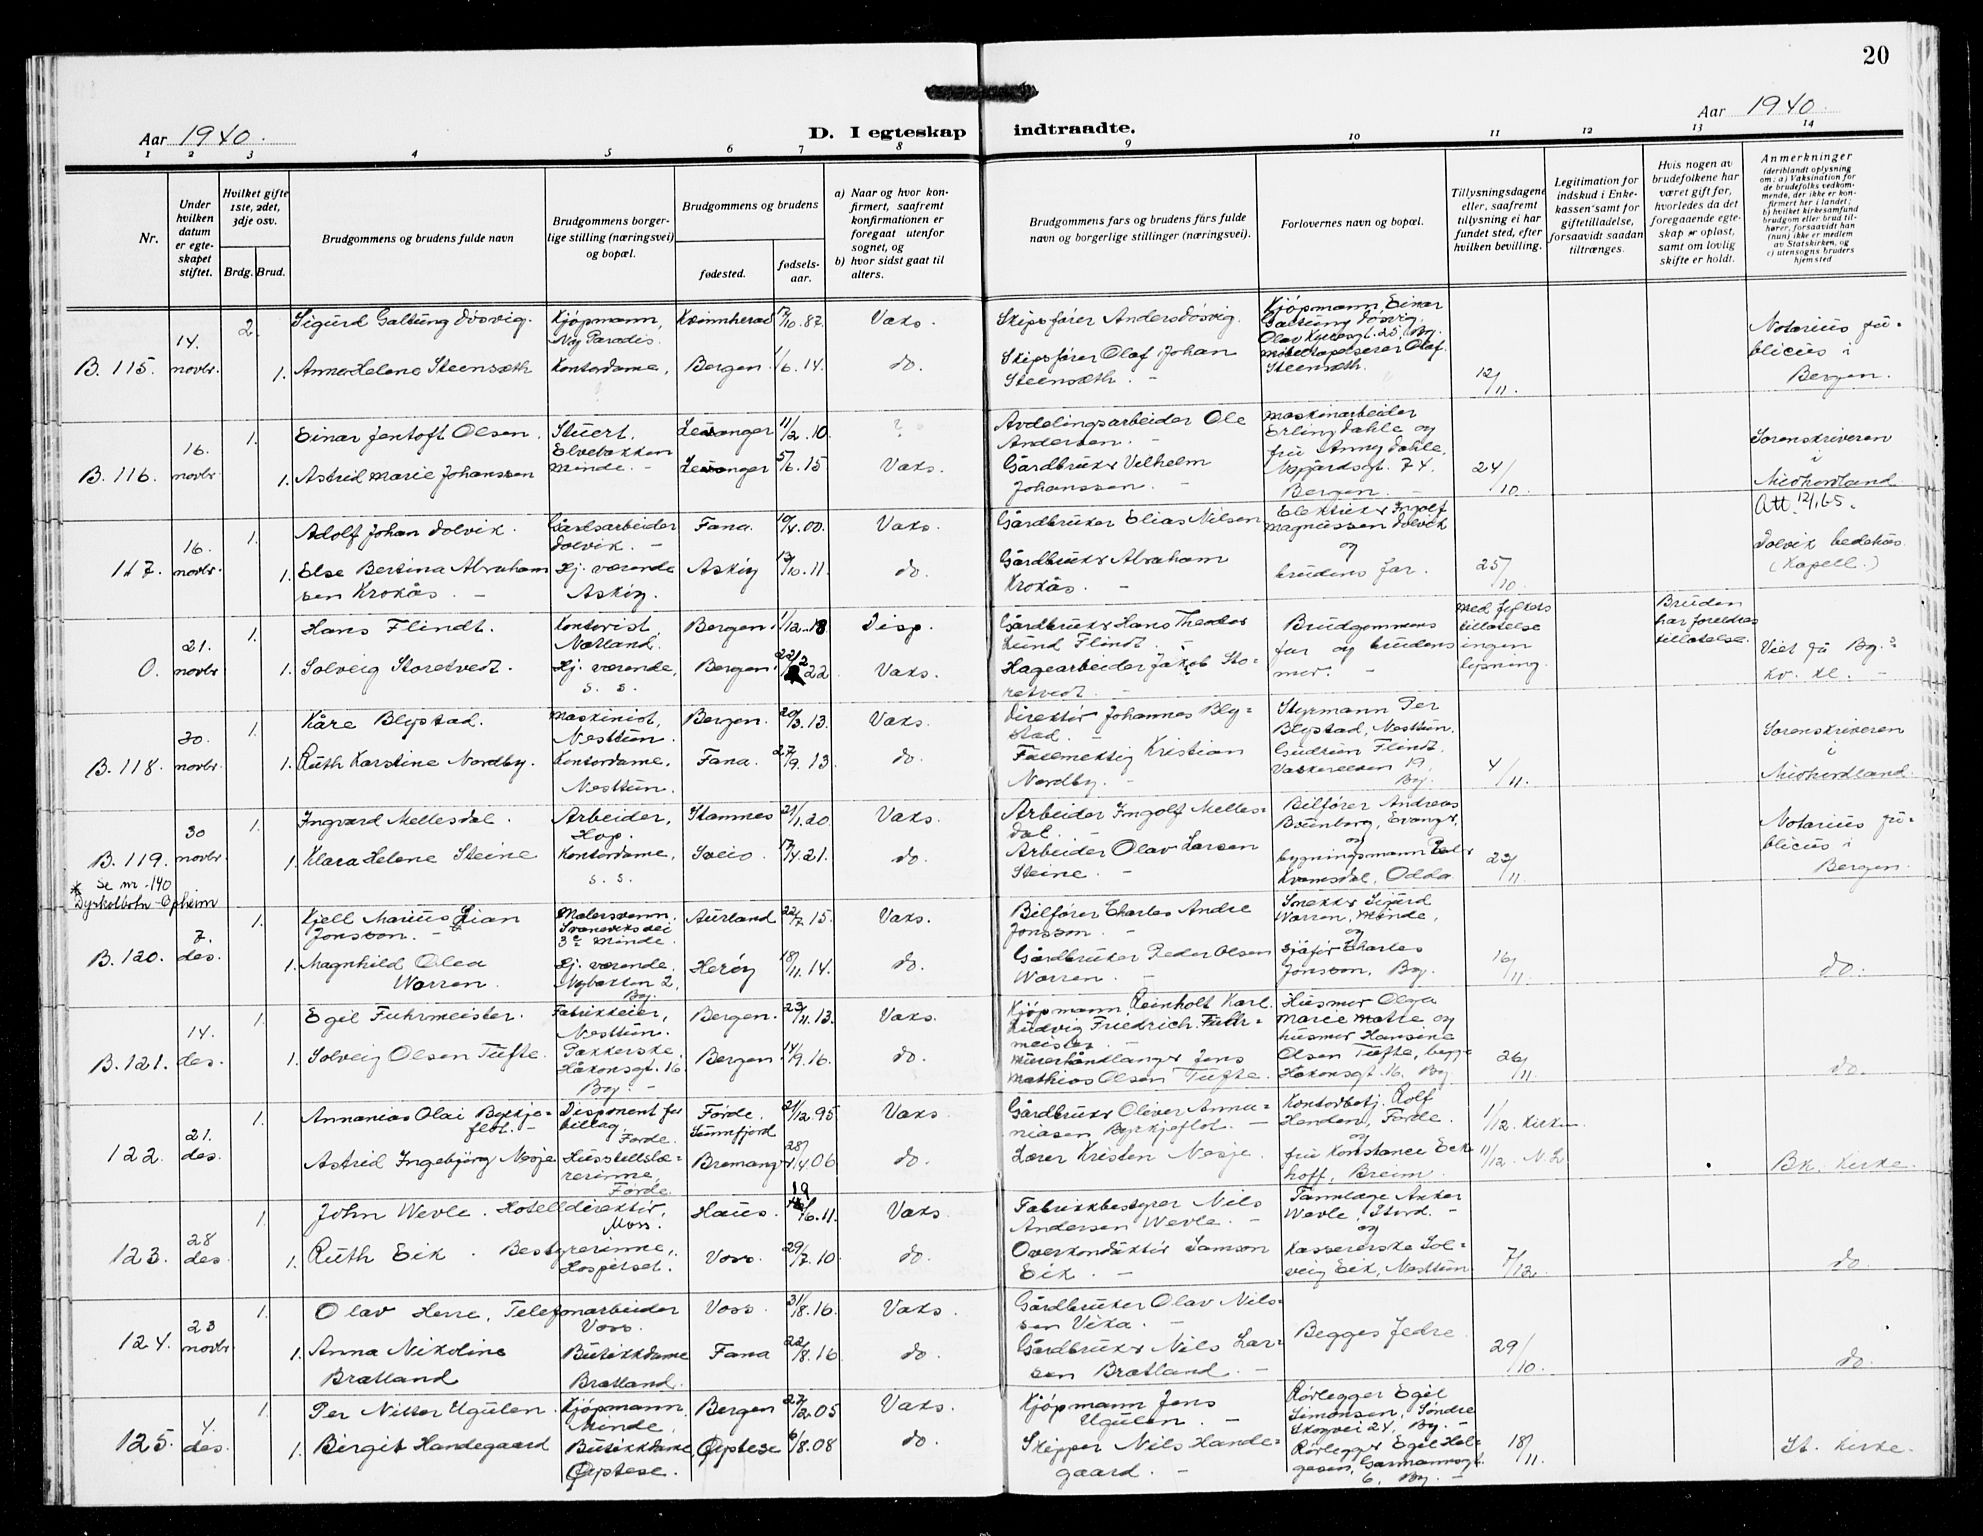 20
Aar 1940.
D. I egteskap indtraadte.
Aar 1940.
1 2 3 4 5 6 7 8 9 10 11 12 13 14
Nr.
Under hvilken datum er egteskapet stiftet.
Hvilket gifte 1ste, 2det, 3dje osv.
Brdg. Brud.
Brudgommens og brudens fulde navn
Brudgommens borgerlige stilling (næringsvei) og bopæl.
Brudgommens og brudens
fødested.
fødselsaar.
a) Naar og hvor konfirmert, saafremt konfirmationen er foregaat utenfor sognet, og
b) hvor sidst gaat til alters.
Brudgommens fars og brudens fars fulde navn og borgerlige stillinger (næringsvei).
Forlovernes navn og bopæl.
Tillysningsdagene eller, saafremt tillysning ei har fundet sted, efter hvilken bevilling.
Legitimation for indskud i Enkekassen samt for giftetilladelse, forsaavidt saadan tiltrænges.
Hvis nogen av brudefolkene har været gift før, hvorledes da det foregaaende egteskap er opløst, samt om lovlig skifte er holdt.
Anmerkninger
(deriblandt oplysning om: a) Vaksination for de brudefolks vedkommende, der ikke er konfirmert her i landet; b) hvilket kirkesamfund brudgom eller brud tilhører, forsaavidt han (hun) ikke er medlem av Statskirken, og c) utensogns bruders hjemsted
B. 115. 14. novbr. 2. Sigurd Galtung Døsvig. Kjøpmann, Ny Paradis. Kvinnherad 17/10.87. Vaks. Skipsfører Anders Døsvig. Kjøpmann Einar Galtung Døsvig, Olav Kyrresgt. 25, By.
1. Anna Helene Steensæth Kontordame, Bergen 1/6.14. do. Skipsfører Olaf Johan Steensæth. Møbelkapelserer Olaf Steensæth. 12/11. Notarius publicus i Bergen.
B. 116. 16. novbr 1. Einar Jentoft Olsen. Stuert. Elvebakken Minde. Levanger 11/2.10. ? Avdelingsarbeider Ole Andersen. Maskinarbeider Erling Dahle og
1. Astrid Marie Johanssen Levanger 5/6.15 Vaks. Gårdbruker Vilhelm Johanssen. fru Anny Dahle, Nygårdsgt. 74. Bergen. 24/10. Sorenskriveren i Midhordland
117. 16. novbr. 1. Adolf Johan Dolvik. Gårdsarbeider Dolvik. Fana. 10/4.00. Vaks. Gårdbruker Elias Nilsen Elektriker Ingolf Magnussen Dolvik og Att. 12/1 65.
1. Else Bertina Abrahamsen Krokås. Hj. værende Askøy. Askøy 13/10.11. do. Gårdbruker Abraham Krokås. brudens far. 25/10. Dolvik bedehus (Kapell.)
0. 21. novbr 1. Hans Flindt. Kontorist, Natland. Bergen. 1/12.18 Disp. Gårdbruker Hans Theodor Lund Flindt. Brudgommens far og brudens mor. med fylkets tillatelse ingen lysning. Bruden har foreldres tillatelse.
1. Solveig Storetvedt. Hj. værende, s. s. Bergen. 22/2 22 Vaks. Hagearbeider Jakob Storetvedt. Viet på By. kv. kl.
B. 118. 30. novbr. 1. Kåre Blystad. Maskinist, Nesttun. Bergen. 20/3.13. Vaks. Direktør Johannes Blystad. Styrmann Per Blystad, Nesttun.
1. Ruth Karstine Nordby. Kontordame, Nesttun. Fana. 27/9.13. do. Fullmektig Kristian Nordby. Gudrun Flindt, Vaskerelven 19, By. 4/11. Sorenskriveren i Midhordland.
B. 119. 30 novbr. 1. Ingvard Mellesdal. Arbeider, Hop. Stamnes 21/1.20. Vaks. Arbeider Ingolf Mellesdal. Bilfører Andreas Brunborg, Evanger, og
1. Klara Helene Steine Kontordame, s. s. Sveio. 17/4.21. do. Arbeider Olav Larsen Steine. bygningsmann Peder Kvamsdal, Odda 23/11. Notarius publicus i Bergen.
* Se nr. 140 Dyskolbotn-Opheim
B. 120. 7. des. 1. Kjell Marius Lian Jonsson. Malersvenn, Svaneviksvei 3c Minde. Aurland 22/7.15. Vaks. Bilfører Charles Andre Jonsson. Snekker Sigurd Warren, Minde, og
1. Magnhild Olea Warren. Hj. værende, Nybakken 2, By. Herøy 18/11.14. do. Gårdbruker Peder Olsen Warren. sjåfør Charles Jonsson, By. 16/11. do.
B. 121. 14. des. 1. Egil Fuhrmeister. Fabrikkeier, Nesttun. Bergen. 23/11.13. Vaks. Kjøpmann Reinholt Karl Ludvig Friedrich Fuhrmeister. Husmor Olga Marie Matre og
1. Solveig Olsen Tufte. Pakkerske. Håkonsgt. 16 By. Bergen. 14/9.16. do. Murerhåndlanger Jens Mathias Olsen Tufte. husmor Hansine Olsen Tufte, begge Håkonsgt. 16, By. 26/11. do.
122. 21. des. 1. Annanias Olai Byrkjeflot. Disponent for billag, Førde. Førde. Sunnfjord 21/12.95 Vaks. Gårdbruker Oliver Annaniasen Byrkjeflot. Kontorbetj. Rolf Henden, Førde. og 1/12. Kirken
1. Astrid Ingebjørg Nesje Husstellslærerinne, Førde. Bremanger 28/4.06 do. Lærer Kristen Nesje. fru Konstance Eikhoff, Breim. 11/12. N. L Bk. kirke.
123. 28 des. 1. John Wevle. Hotelldirektør, Voss. Haus. 19/6.11. Vaks. Fabrikkbestyrer Nils Andersen Wevle. Tannlege Anker Wevle, Stord. og
1. Ruth Eik. Bestyrerinne, Hospitset. Voss. 29/7.10 do. Overkonduktør Samson Eik. Kassererske Solveig Eik, Nesttun 7/12. do.
124. 23 novbr 1. Olav Herre, Telefonarbeider Voss. Voss. 31/8.16. Vaks. Gårdbruker Olav Nilssen Vika. Begges fedre
1. Anna Nikoline Bratland Butikkdame Bratland. Fana 22/8.16 do. Gårdbruker Nils Larsen Bratland. 29/10. do.
125. 4. des. 1. Per Nitter Ugulen. Kjøpmann, Minde, Bergen 27/2.05 Vaks. Kjøpmann Jens Ugulen. Rørlegger Egil Simonsen, Søndre Skogvei 24, By.
1. Birgit Handegaard Butikkdame, Øystese. Øystese 6/8.08 do. Skipper Nils Handegaard. Rørlegger Egil Helgesen, Garmannsgt. 6, By. 18/11. St. kirke.